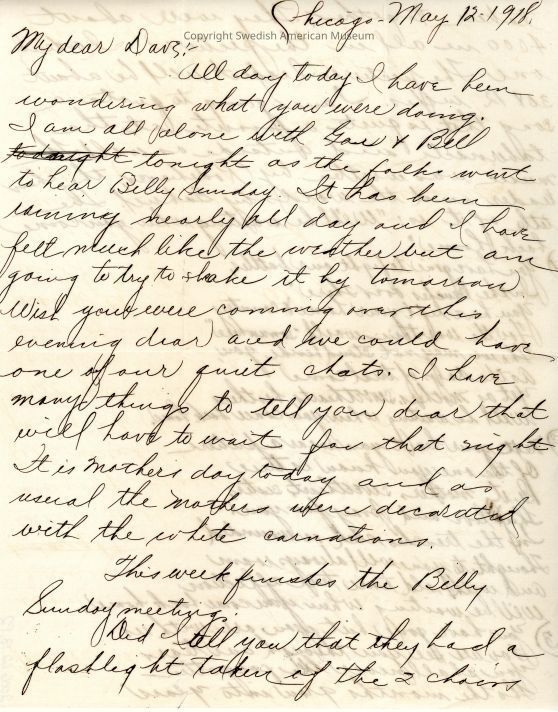 Chicago - May 12 - 1918.
Copyright Swedish American Museum
My dear Dave:-
All day today I have been
wondering what you were doing.
I am all alone with & Bell
tonight as the folks went
to hear Billy Sunday. It has been
raining nearly all day and I have
felt much like the weather but am
going to try to shake it by tomorrow
Wish you were coming over this
evening dear and we could have
one of our quiet chats. I have
many things to tell you dear that
will have to wait for that night
It is Mothers day today and as
usual the Mothers were decorated
with the white carnations.
This week finishes the Billy
Sunday meeting.
Did I tell you that they had a
flashlight taken of the 2 choirs